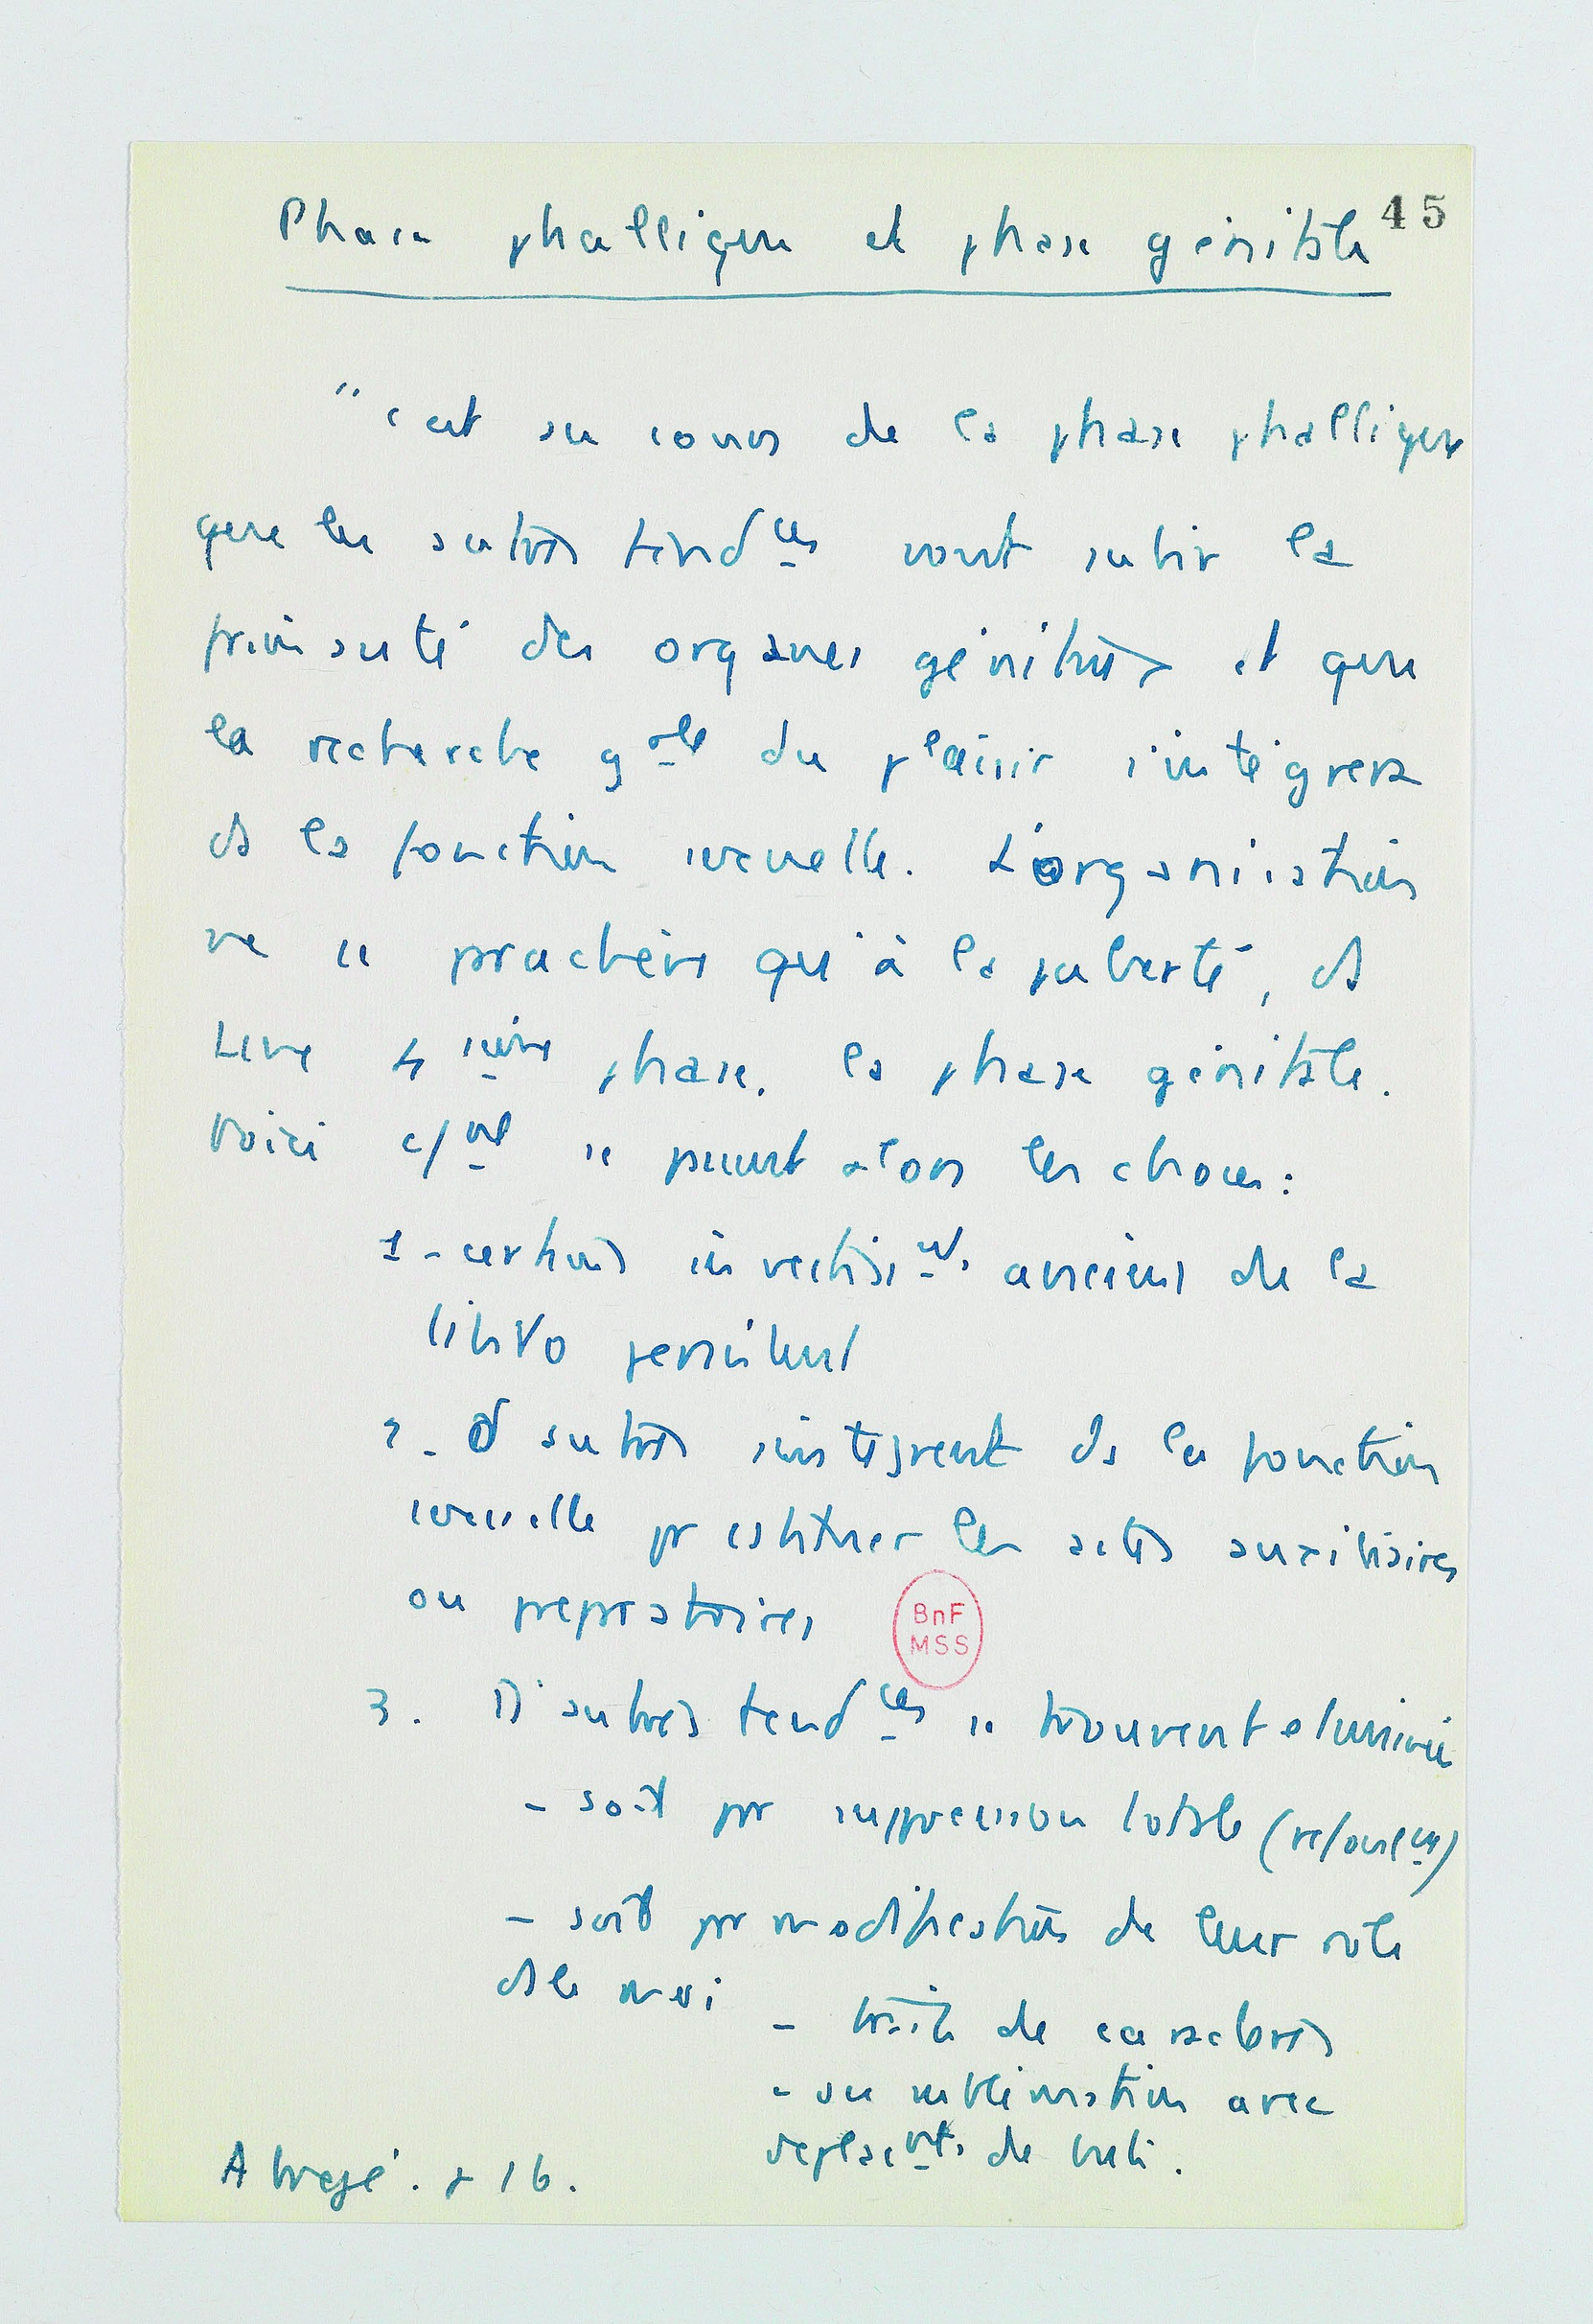 45
Phase phallique et phase génitale
"c'est au cours de la phase phallique
que les autres tendces vont subir la
primauté des organes génitaux et que
la recherche gale du plaisir s'intégrera
ds la fonction sexuelle. L'organisation
ne se parachève qu'à la puberté, ds
une 4ième phase, la phase génitale.
Voici c/nt se passent alors les choses :
1 - certains investisnts anciens de la
libido persistent
2 - d'autres s'intègrent ds la fonction
sexuelle pr constituer les actes auxiliaires
ou préparatoires
BnF
MSS
3. D'autres tendces se trouvent éliminées
- soit par suppression totale (refoulnt)
- soit par modification de leur rôle
ds le moi - traits de caractères
- ou sublimation avec
déplacnts de buts.
Abrégé. p 16.